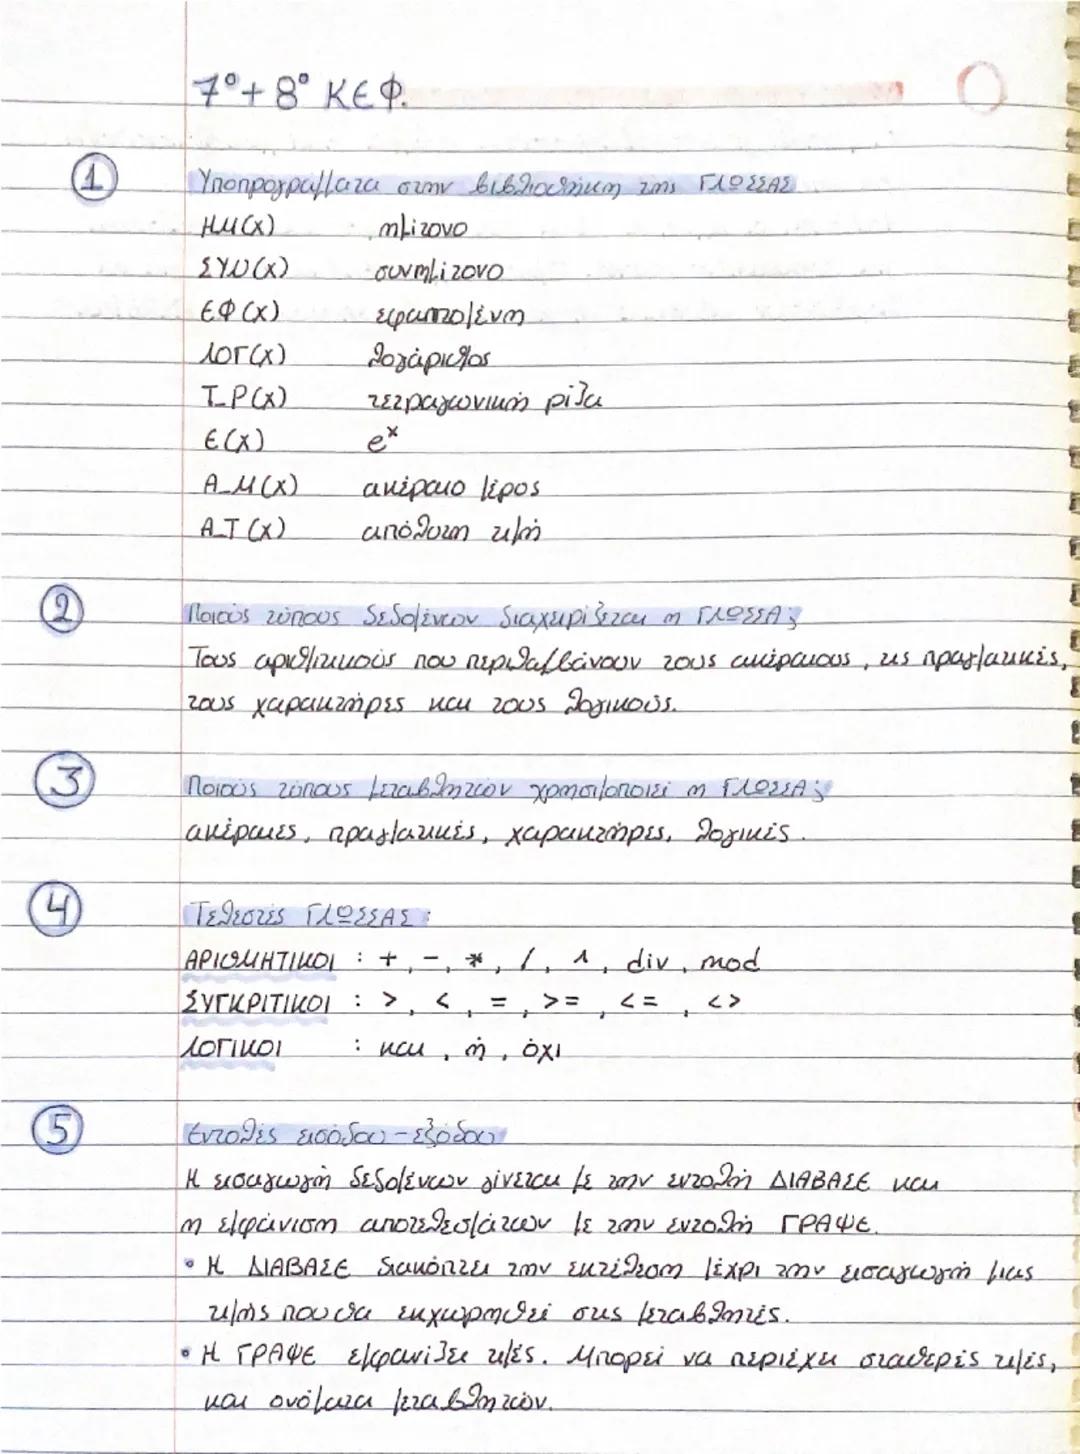 7° + 8° ΚΕΦ.
1 Υποπρογράμματα στην βιβλιοθήκη της ΓΛΩΣΣΑΣ
ΗΜ(Χ) ημίτονο
ΣΥΝ(Χ) συνημίτονο
ΕΦ(Χ) εφαπτομένη
ΛΟΓ(Χ) λογάριθμος
Τ_Ρ(Χ) τετραγωνική ρίζα
Ε(Χ) e^x
Α_Μ(Χ) ακέραιο μέρος
Α_Τ(Χ) απόλυτη τιμή
2 Ποιούς τύπους δεδομένων διαχειρίζεται η ΓΛΩΣΣΑ;
Τους αριθμητικούς που περιλαμβάνουν τους ακέραιους, τις πραγματικές,
τους χαρακτήρες και τους λογικούς.
3 Ποιούς τύπους μεταβλητών χρησιμοποιεί η ΓΛΩΣΣΑ;
ακέραιες, πραγματικές, χαρακτήρες, λογικές.
4 Τελεστές ΓΛΩΣΣΑΣ:
ΑΡΙΘΜΗΤΙΚΟΙ : +, -, *, /, ^, div, mod
ΣΥΓΚΡΙΤΙΚΟΙ : >, <, =, >=, <=, <>
ΛΟΓΙΚΟΙ : και, ή, όχι
5 Εντολές εισόδου - εξόδου
Η εισαγωγή δεδομένων γίνεται με την εντολή ΔΙΑΒΑΣΕ και
η εμφάνιση αποτελεσμάτων με την εντολή ΓΡΑΨΕ.
• Η ΔΙΑΒΑΣΕ διακόπτει την εκτέλεση μέχρι την εισαγωγή μιας
τιμής που θα εκχωρηθεί στις μεταβλητές.
• Η ΓΡΑΨΕ εμφανίζει τιμές. Μπορεί να περιέχει σταθερές τιμές,
και ονόματα μεταβλητών.